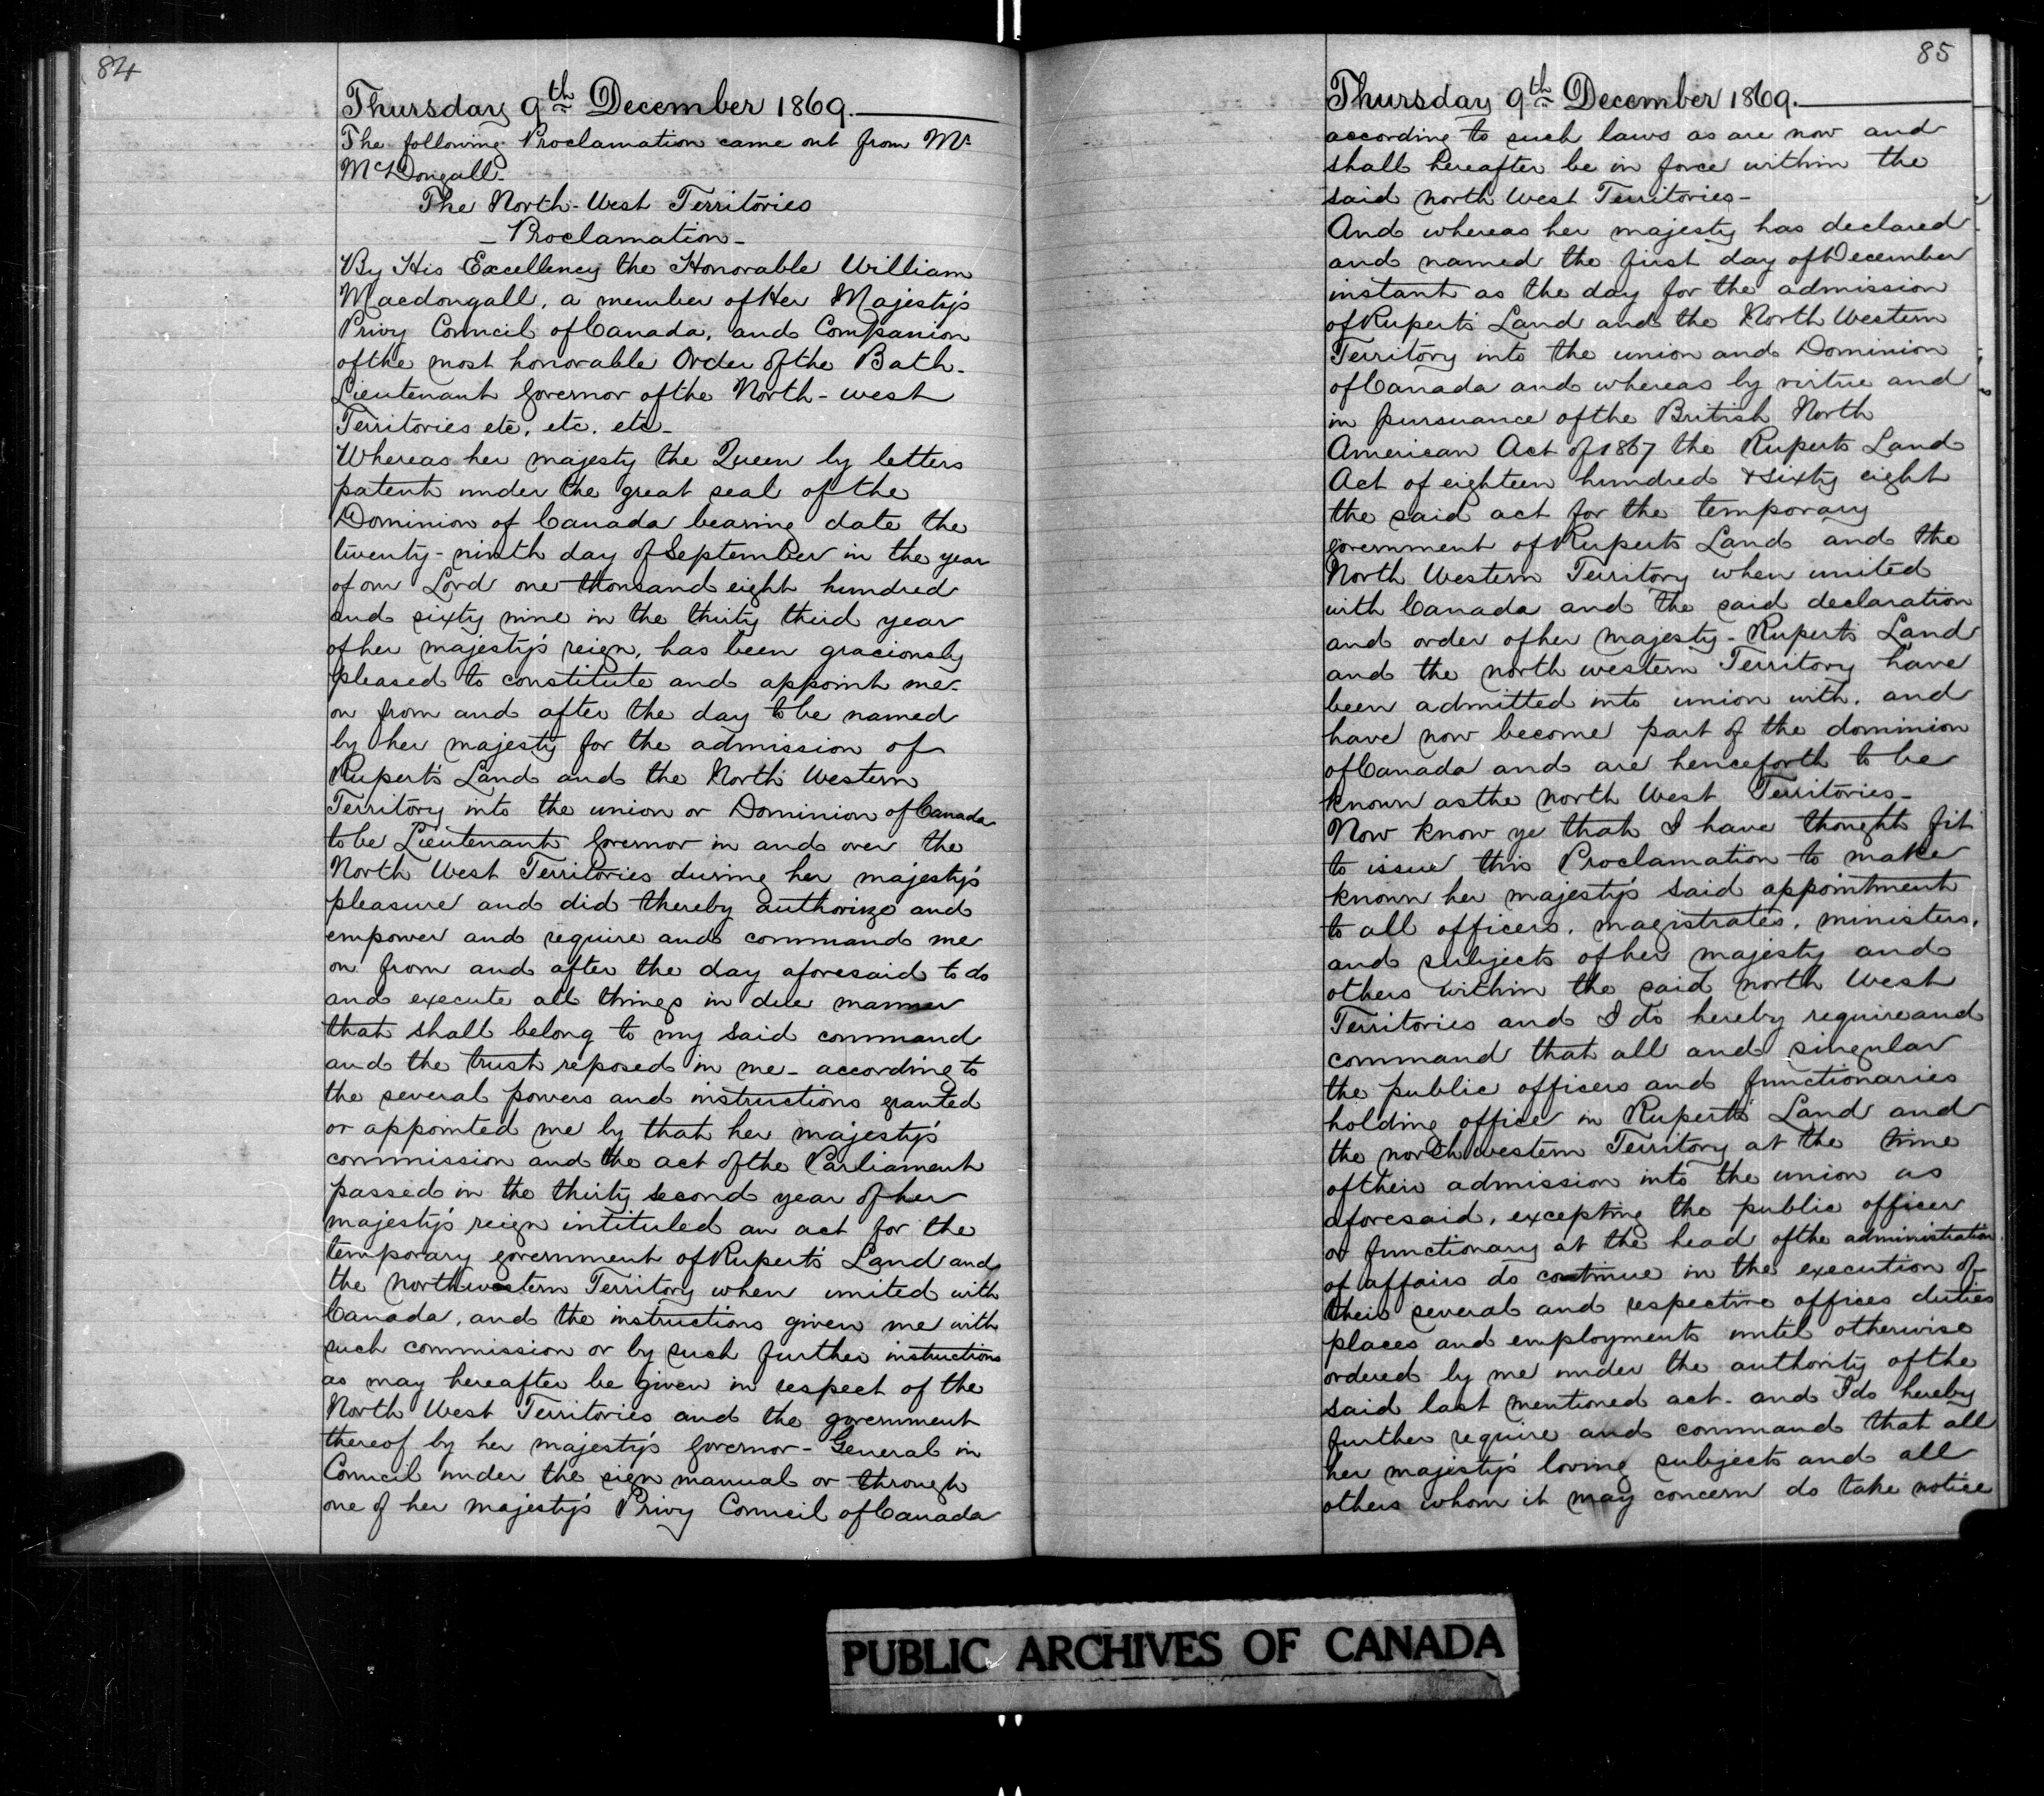 84
Thursday 9th December 1869.
The following Proclamation came out from Mr
McDougall.
The North-West Territories
- Proclamation -
By His Excellency the Honorable William
Macdougall, a member of Her Majesty's
Privy Council of Canada, and Companion
of the most honorable Order of the Bath-
Lieutenant Governor of the North-west
Territories etc. etc. etc-
Whereas her majesty the Queen by letters
patent under the great seal of the
Dominion of Canada bearing date the
twenty-ninth day of September in the year
of our Lord one thousand eight hundred
and sixty nine in the thirty third year
of her majesty's reign, has been graciously
pleased to constitute and appoint me-
on from and after the day to be named
by her majesty for the admission of
Rupert's Land and the North Western
Territory into the union or Dominion of Canada
to be Lieutenant Governor in and over the
North West Territories during her majesty's
pleasure and did thereby authorize and
empower and require and command me
on from and after the day aforesaid to do
and execute all things in due manner
that shall belong to my said command
and the trust reposed in me- according to
the several powers and instructions granted
or appointed me by that her majesty's
commission and the act of the Parliament
passed in the thirty second year of her
majesty's reign intituled an act for the
temporary government of Rupert's Land and
the northwestern Territory when united with
Canada, and the instructions given me with
such commission or by such further instructions
as may hereafter be given in respect of the
North West Territories and the government
thereof by her majesty's Governor-General in
Council under the sign manual or through
one of her majesty's Privy Council of Canada
85
Thursday 9th December 1869.
according to such laws as are now and
shall hereafter be in force within the
said north West Territories-
And whereas her majesty has declared
and named the first day of December
instant as the day for the admission
of Rupert's Land and the North Western
Territory into the union and Dominion
of Canada and whereas by virtue and
in pursuance of the British North
American Act of 1867 the Ruperts Land
Act of eighteen hundred & sixty eight
the said act for the temporary
government of Ruperts Land and the
North Western Territory when united
with Canada and the said declaration
and order of her majesty- Rupert's Land
and the north western Territory have
been admitted into union with, and
have now become part of the dominion
of Canada and are henceforth to be
known as the north West Territories-
Now know ye that I have thought fit
to issue this Proclamation to make
known her majesty's said appointment
to all officers, magistrates, ministers,
and subjects of her majesty and
others within the said north West
Territories and I do hereby require and
command that all and singular
the public officers and functionaries
holding office in Rupert's Land and
the north western Territory at the time
of their admission into the union as
aforesaid, excepting the public officer
or functionary at the head of the administration
of affairs do continue in the execution of
their several and respective offices duties
places and employments until otherwise
ordered by me under the authority of the
said last mentioned act- and I do hereby
further require and command that all
her majesty's loving subjects and all
others whom it may concern do take notice
PUBLIC ARCHIVES OF CANADA